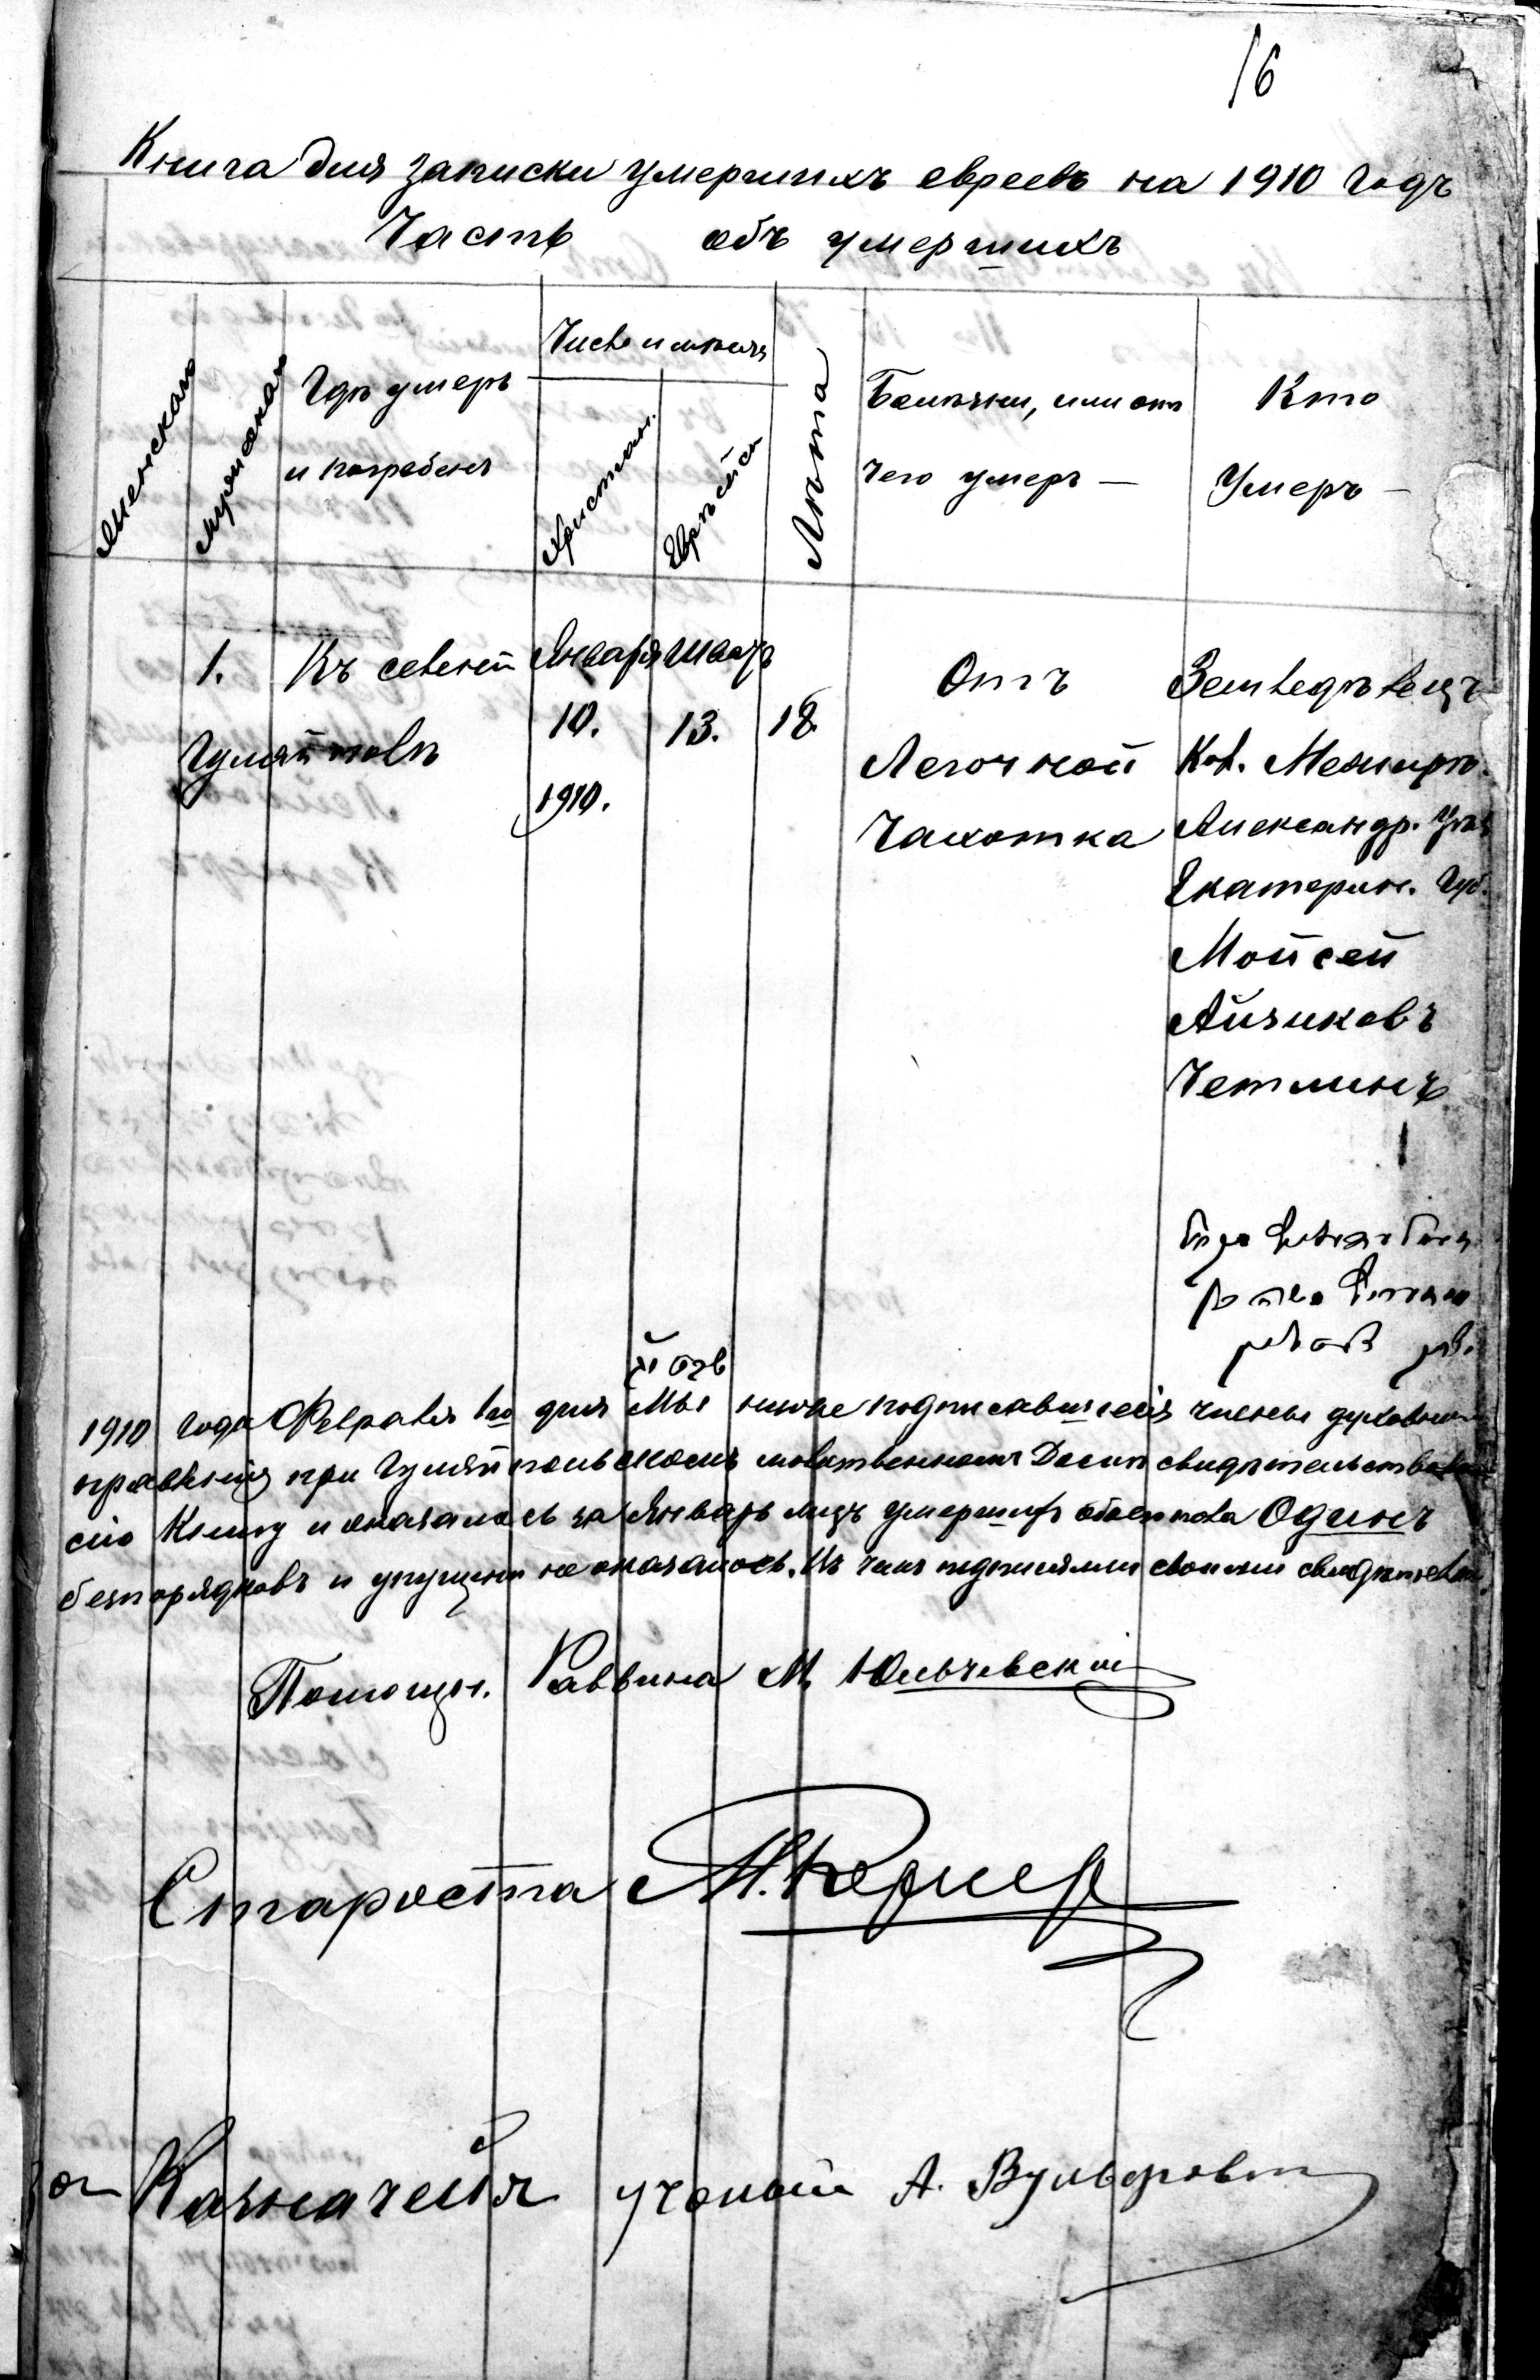 16
Книга для записки умершихъ евреевъ на 1910 годъ
Часть объ умершихъ
Женскаго
Мужскаго
Гдѣ умеръ
и погребенъ
Число и мѣсяцъ
Христіан.
Еврейск
Лѣта
Болѣзни, или отъ
чего умеръ —
Кто
Умеръ —
1.
Въ селеніи
Гуляйполѣ
Января
10.
1910.
Шватъ
13.
18
Отъ
Легочной
Чахотка
Земледѣлецъ
Кол. Межирѣч.
Александр. Уѣз
Екатерин. Губ.
Мойсей
Айзиковъ
Четлинъ
1910 года Февраля 1го дня Мы нижеподписавшіеся члены духовнаго
правленія при Гуляйпольскомъ молитвенномъ Домѣ свидѣтельствовали
сію Книгу и оказалось за Январь лицъ умершихъ обоего пола Одинъ
безпорядковъ и упущеній не оказалось. Въ чемъ подписями своими свидѣтельствуемъ
Помощн. Раввина М. Юльчевскій
Староста М. Кернеръ
за Казначея ученый А. Вульфовъ